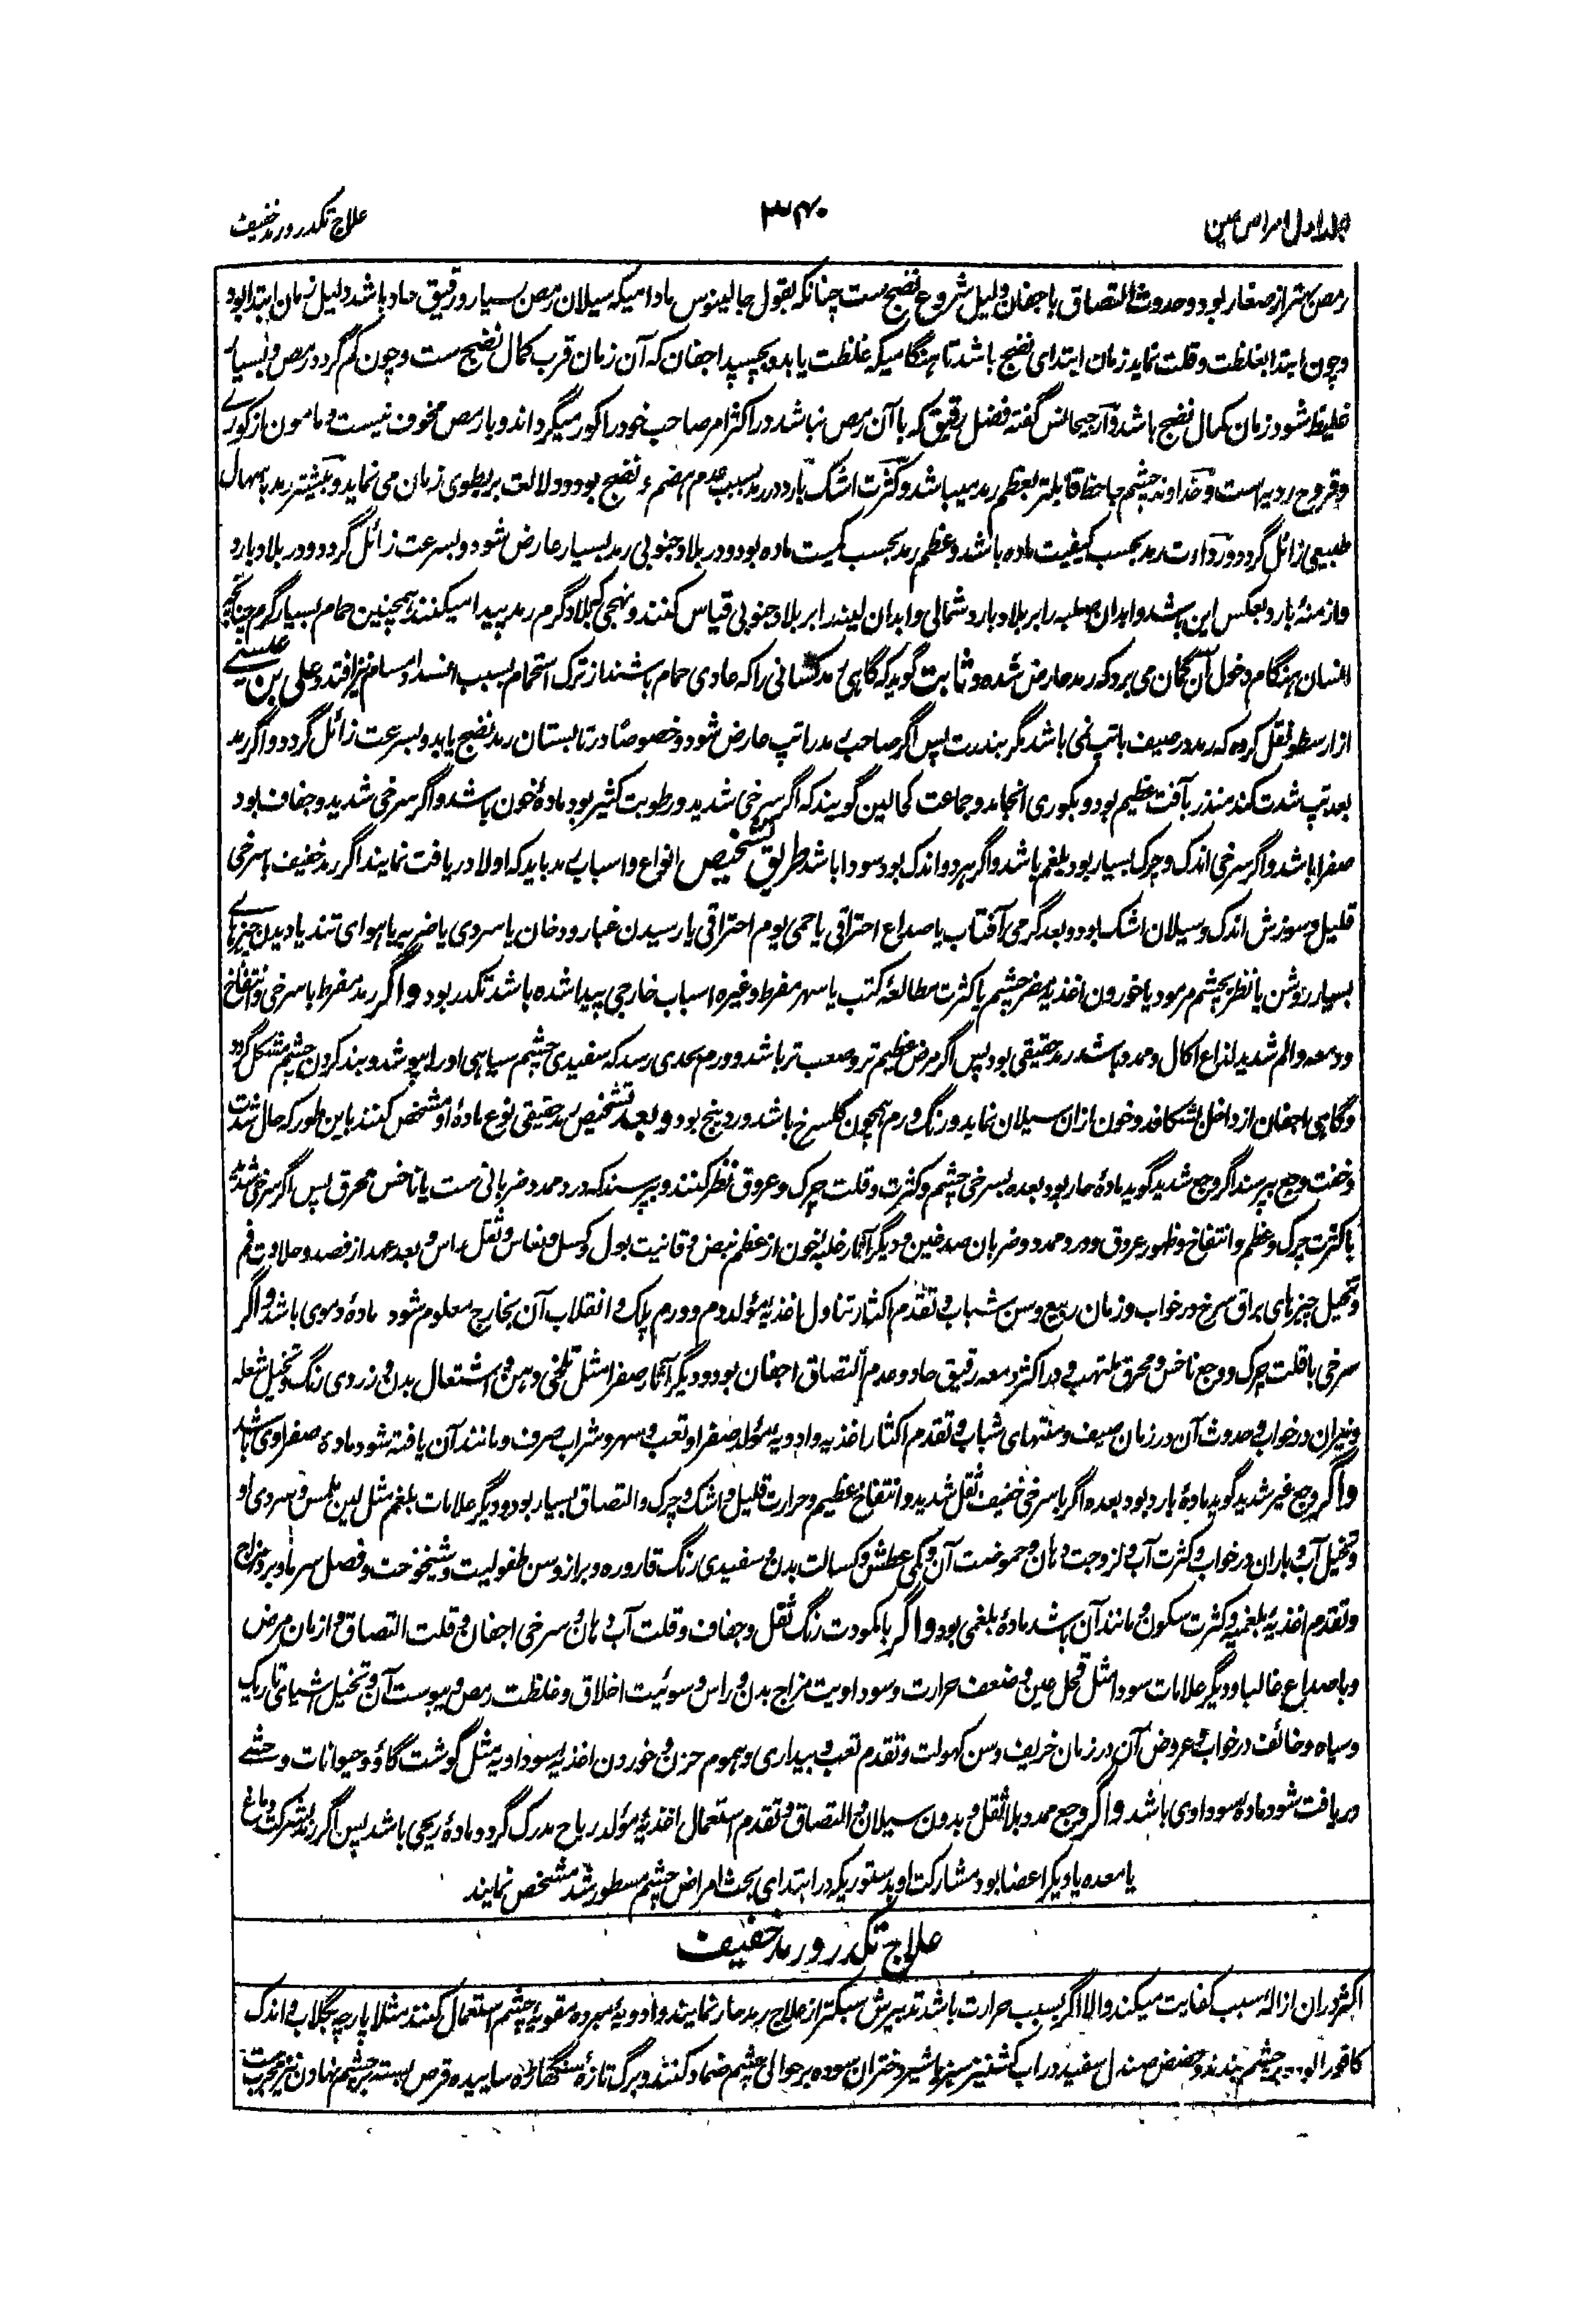 جلد اول امراض عین
۳۴۰
علاج تکدر و رمد خفیف
رمص بهتر از صغار بود و حدوث التصاق باجفان دلیل شروع نضج ست چنانکه بقول جالینوس مادامیکه سیلان رمص بسیار و رقیق حاد باشد دلیل زمان ابتدا بود
و چون ابتدا بغلظت و قلت نماید زمان ابتدای نضج باشد تا هنگامیکه غلظت یابد و بچسپد اجفان که آن زمان قرب کمال نضج ست و چون کم گردد رمص و بسیار
غلیظ شود زمان کمال نضج باشد و گفته فضل رقیق که با آن رمص نباشد در اکثر امر صاحب خود را کور میگرداند و با رمص مخوف نیست و مامون از کوری
و قروح ردیه است و خداوند چشم جاحظ قابلتر بعظم رمد میباشد و کثرت اشک بارد در رمد بسبب عدم هضم و نضج بود و دلالت بر بطوی زمان می نماید و بیشتر رمد باسهال
طبیعی زائل گردد و رداءت رمد بحسب کیفیت ماده باشد و عظم رمد بحسب کمیت ماده بود و در بلاد جنوبی رمد بسیار عارض شود و بسرعت زائل گردد و در بلاد بارد
و ازمنهٔ بارد بعکس این باشد و ابدان صلبه را بر بلاد بارد و شمالی و ابدان لینه را بر بلاد جنوبی قیاس کنند و نهجی که بلاد گرم رمد پیدا میکنند همچنین حمام بسیار گرم چنانچه
انسان هنگام دخول آن گمان می برد که رمد عارض شده و ثابت گوید که گاهی رمد کسانی را که عادی حمام باشند از ترک استحمام بسبب انسداد مسام نیز افتد و علی بن عیسی
از ارسطو نقل کرده که رمد در صیف باتپ نمی باشد مگر بندرت پس اگر صاحب رمد را تپ عارض شود و خصوصًا در تابستان رمد نضج یابد و بسرعت زائل گردد و اگر رمد
بعد تپ شدت کند منذر بآفت عظیم بود و بکوری انجامد و جماعت کحالین گویند که اگر سرخی شدید و رطوبت کثیر بود مادهٔ خون باشد و اگر سرخی شدید و جفاف بود
صفرا باشد و اگر سرخی اندک و چرک بسیار بود بلغم باشد و اگر هر دو اندک بود سودا باشد طریق تشخیص انواع و اسباب رمد باید که اولا دریافت نمایند اگر رمد خفیف با سرخی
قلیل و سوزش اندک و سیلان اشک بود و بعد گرمی آفتاب یا صداع احتراقی یا حمی یوم احتراقی یا رسیدن غبار و دخان یا سردی یا ضربه یا هوای تند یا دیدن چیزهای
بسیار روشن یا نظر بچشم مرمود یا خوردن اغذیه مضر چشم یا کثرت مطالعهٔ کتب یا سهر مفرط وغیره اسباب خارجی پیدا شده باشد تکدر بود و اگر رمد مفرط با سرخی و انتفاخ
و دمعه و الم شدید لذاع اکال و ممدد باشد رمد حقیقی بود پس اگر مرض عظیم تر و صعب تر باشد و ورم بحدی رسد که سفیدی چشم سیاهی او را بپوشد و بند کردن چشم مشکل گردد
و گاهی اجفان از داخل بشگافد و خون ازان سیلان نماید و رنگ ورم همچون گلسرخ باشد وردینج بود و بعد تشخیص رمد حقیقی نوع مادهٔ او مشخص کنند باین طور که حال شدت
و خفت وجع بپرسند اگر وجع شدید گوید مادهٔ حار بود بعده بسرخی چشم و کثرت و قلت چرک و عروق نظر کنند و بپرسند که درد ممدد ضربانی ست یا ناخس محرق پس اگر سرخی شدید
با کثرت چرک و عظم و انتفاخ و ظهور عروق و درد ممدد و ضربان صدغین و دیگر آثار غلبهٔ خون از عظم نبض و قانیت بول و کسل و نعاس و ثقل راس و بعد عهد از فصد و حلاوت فم
و تخیل چیزهای براق سرخ در خواب و زمان ربیع و سن شباب و تقدم اکثار تناول اغذیه مؤلد دم و ورم پلک و انقلاب آن بخارج معلوم شود مادهٔ دموی باشد و اگر
سرخی با قلت چرک و وجع ناخس و محرق ملتهب و در اکثر دمعه رقیق حاد و عدم التصاق اجفان بود و دیگر آثار صفرا مثل تلخی دهن و اشتعال بدن و زردی رنگ و تخیل شعله
و نیران در خواب و حدوث آن در زمان صیف و منتهای شباب و تقدم اکثار اغذیه و ادویه مؤلد صفرا و تعب و سهر و شراب صرف و مانند آن یافته شود مادهٔ صفراوی باشد
و اگر وجع غیر شدید گوید مادهٔ بارد بود بعده اگر با سرخی خفیف ثقل شدید و انتفاخ عظیم و حرارت قلیل و اشک و چرک و التصاق بسیار بود و دیگر علامات بلغم مثل لین ملمس و سردی او
و تخیل آب و باران در خواب و کثرت آب و لزوجت دهان و حموضت آن و کمی عطش و کسالت بدن و سفیدی رنگ قاروره و براز و سن طفولیت و شیخوخت و فصل سرما و برد مزاج
و تقدم اغذیهٔ بلغمیه و کثرت سکون و مانند آن باشد مادهٔ بلغمی بود و اگر با کمودت رنگ ثقل و جفاف و قلت آب دهان و سرخی اجفان و قلت التصاق و ازمان مرض
و با صداع غالبا و دیگر علامات سودا مثل قحل عین و ضعف حرارت و سوداویت مزاج بدن و راس و سوئیت اخلاق و غلظت رمص و یبوست آن و تخیل اشیای تاریک
و سیاه و خائف در خواب و عروض آن در زمان خریف و سن کهولت و تقدم تعب و بیداری و هموم حزن و خوردن اغذیه سوداویه مثل گوشت گاؤ و حیوانات وحشی
دریافت شود مادهٔ سوداوی باشد و اگر وجع ممدد بلا ثقل و بدون سیلان و التصاق و تقدم استعمال اغذیهٔ مؤلد ریاح مدرک گردد مادهٔ ریحی باشد پس اگر رمد بشرکت دماغ
یا معده یا دیگر اعضا بود مشارکت او بدستوریکه در ابتدای بحث امراض چشم مسطور شد مشخص نمایند
علاج تکدر و رمد خفیف
اکثر دران ازالهٔ سبب کفایت میکند والا اگر بسبب حرارت باشد تدبیرش سبکتر از علاج رمد حار نمایند و ادویهٔ مبرده مقویهٔ چشم استعمال کنند مثلا پارچه بگلاب و اندک
کافور آلوده بر چشم بندند و حضض صندل سفید در آب کشنیز سبز یا شیر دختران سوده بر حوالی چشم ضماد کنند و برگ تازهٔ سنگهاڑه ساییده قرص بسته بر چشم نهادن نیز مجرب ست